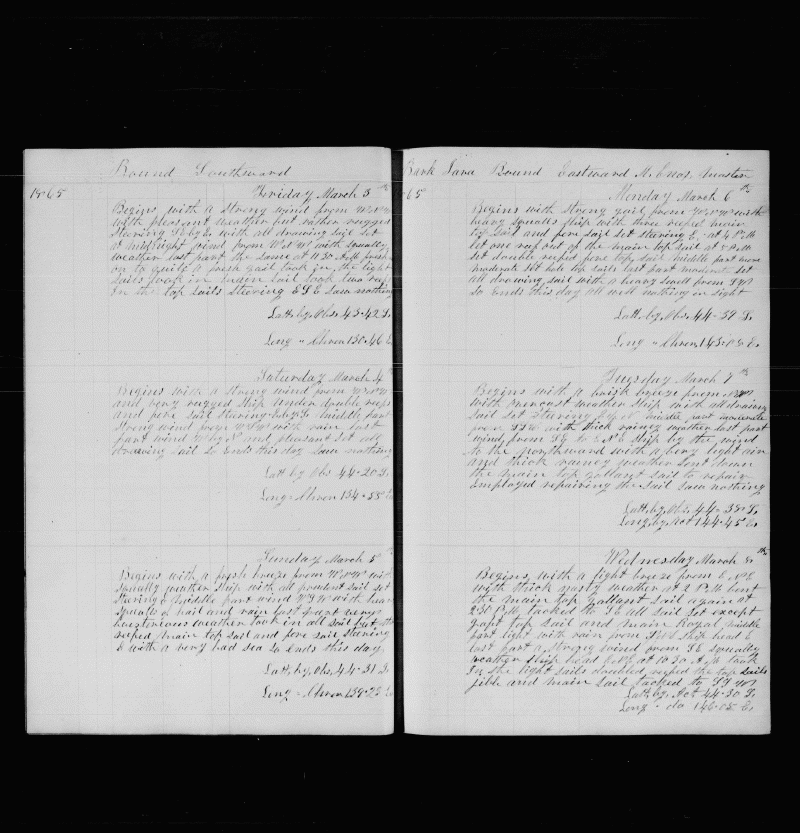 Bound Southward
1865
Friday March 3th
Begins with a strong wind from W.N.W
with pleasant weather but rather rugged
steering S E by E with all drawing sail set
at midnight wind from W N W with squally
weather last part the same at 11.30 A.M fresh
on to quite a fresh gail took in the light
sails took in main sail took two reefs
in the top sails steering E S E Saw nothing
Latt. by Obs. 43-42 S.
Long " Chron 130-46 E
Saturday March 4th
Begins with a strong wind from W N W
and very rugged Ship under double reefs
and fore sail steering middle part
strong wind from W S W with rain last
part wind W by N and pleasant set all
drawing sail So Ends this day Saw nothing
Latt by Obs 44-20 S.
Long - Chron 134-58 E
Sunday March 5th
Begins with a fresh breeze from W.N.W with
squally weather Ship with all prudent sail set
steering E middle part wind W S W with heavy
squalls of hail and rain last part very
boisterous weather took in all sail but
reefed main top sail and fore sail steering
E with a very bad sea So Ends this day
Latt. by Obs 44-31 S.
Long - Chron 139-23 E
Bark Lara Bound Eastward M. Enos. Master
65
Monday March 6th
Begins with strong gail from W.N.W with
heavy squalls Ship with three reefed main
top sail and fore sail set steering E. at 4 P.M
let one reef out of the main top sail at 5 P.M
set double reefed fore top sail middle part more
moderate set hole top sails last part moderate set
all drawing sail with a heavy swell from S W
So Ends this day all well nothing in sight
Latt. by Obs. 44-37 S.
Long " Chron. 143-03 E.
Tuesday March 7th
Begins with a brisk breeze from
with overcast weather Ship with all drawing
sail set steering E by N middle part moderate
from S S W. with thick rainey weather last part
wind from S E to E N E Ship by the wind
to the northward with a very light air
and thick rainey weather Sent down
the main top gallant sail to repair
Employed repairing the sail Saw nothing
Latt. by Obs. 44-39 S.
Long by Act 144-45 E.
Wednesday March 8th
Begins with a light breeze from E N E
with thick nasty weather at 2 P.M bent
the main top gallant sail again at
2.30 P.M tacked to S E all sail set except
gaft top sail and main Royal middle
part light with rain from Ship head E
last part a strong wind from S E squally
weather Ship head at 10.30 A.M took
in the light sails doubled reefed the top sails
jibb and main sail tacked to
Latt. by Act 44-30 S.
Long - do 146-05 E.